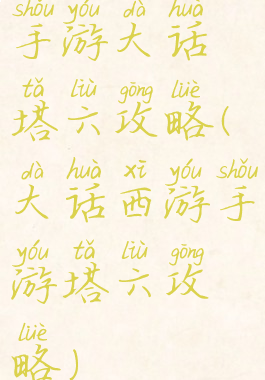 shǒu yóu dà huà
手游大话
tǎ liù gōng lüè
塔六攻略(
dà huà xī yóu shǒu
大话西游手
yóu tǎ liù gōng
游塔六攻
lüè
略)